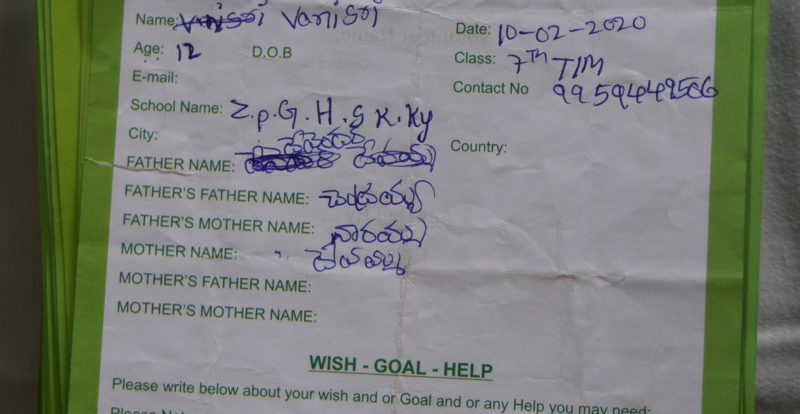 Name: Vanisri
Date: 10-02-2020
Age: 12 D.O.B
Class: 7TH TIM
E-mail:
Contact No 9959449506
School Name: Z.p.G.H.S K.Ky
City:
Country:
FATHER NAME:
FATHER'S FATHER NAME: చంద్రయ్య
FATHER'S MOTHER NAME: నారమ్మ
MOTHER NAME:
MOTHER'S FATHER NAME:
MOTHER'S MOTHER NAME:
WISH - GOAL - HELP
Please write below about your wish and or Goal and or any Help you may need:
Please